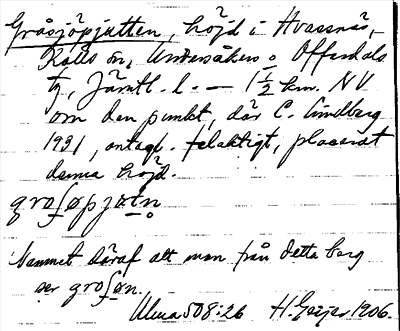 Gråsjöpjätten, höjd i Hvassnäs,
Kalls sn, Undersåkers o Offerdals
tg, Jämtl. l. — 1½ km. NV
om den punkt, där C. Lindberg
1921, antagl. felaktigt, placerat
denna höjd.
groʃøpjætn.
Namnet däraf att man från detta berg
ser groʃøn.
Ulma 508:26 H. Geijer 1906.